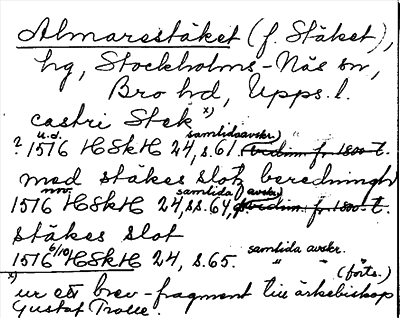 Almarestäket (f. Stäket),
hg, Stockholms-Näs sn,
Bro hd, Upps. l.
castri Stek x)
u.d. samtida avskr.) "
? 1516 HSkH 24, s. 61. (vidim. fr. 1800-t.
med stäkes slotz beredningh
nov. samtida (avskr.)
1516 HSkH 24, ss. 64, (vidim. fr. 1800-t.
stäkes slot
1516 6/10 HSkH 24, s. 65. samtida avskr.
" " "
(forts.)
x) ur ett brev-fragment till ärkebiskop
Gustaf Trolle.